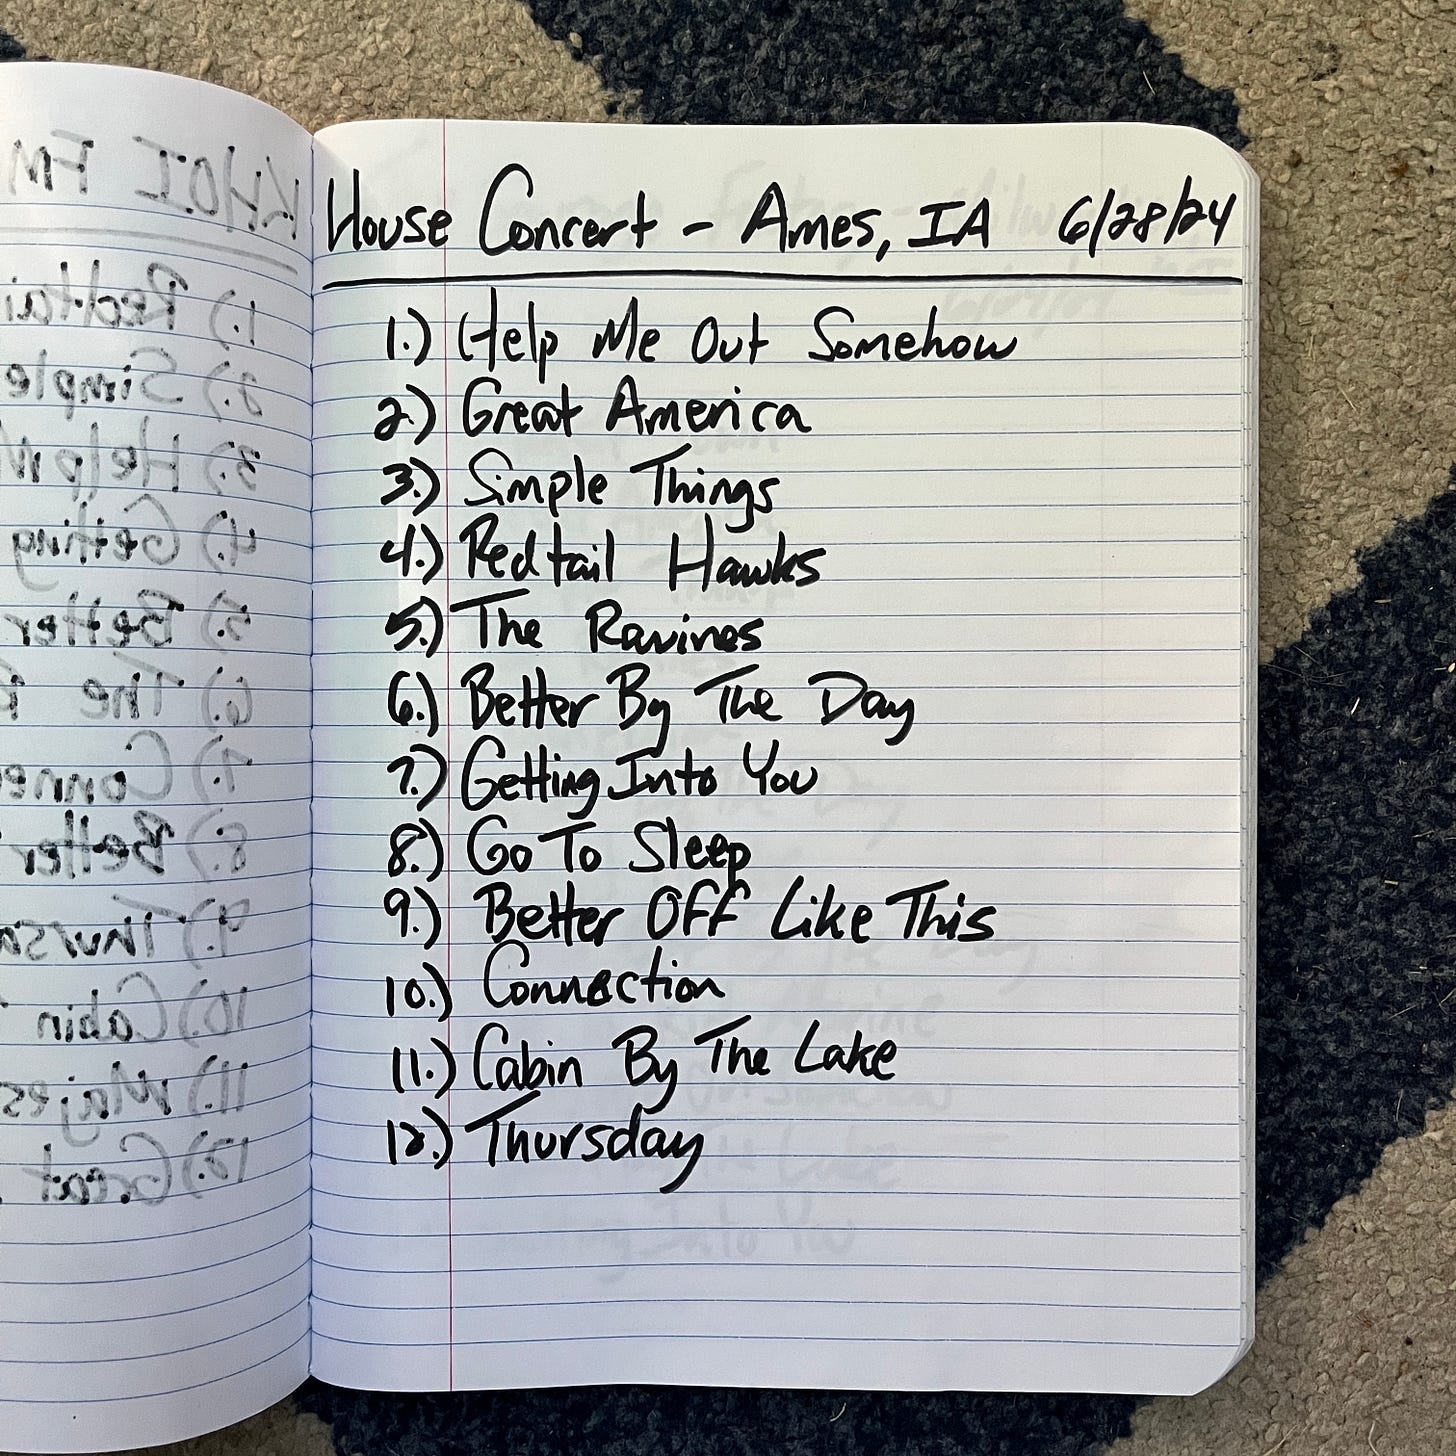 House Concert - Ames, IA 6/28/24
1.) Help Me Out Somehow
2.) Great America
3.) Simple Things
4.) Redtail Hawks
5.) The Ravines
6.) Better By The Day
7.) Getting Into You
8.) Go To Sleep
9.) Better Off Like This
10.) Connection
11.) Cabin By The Lake
12.) Thursday